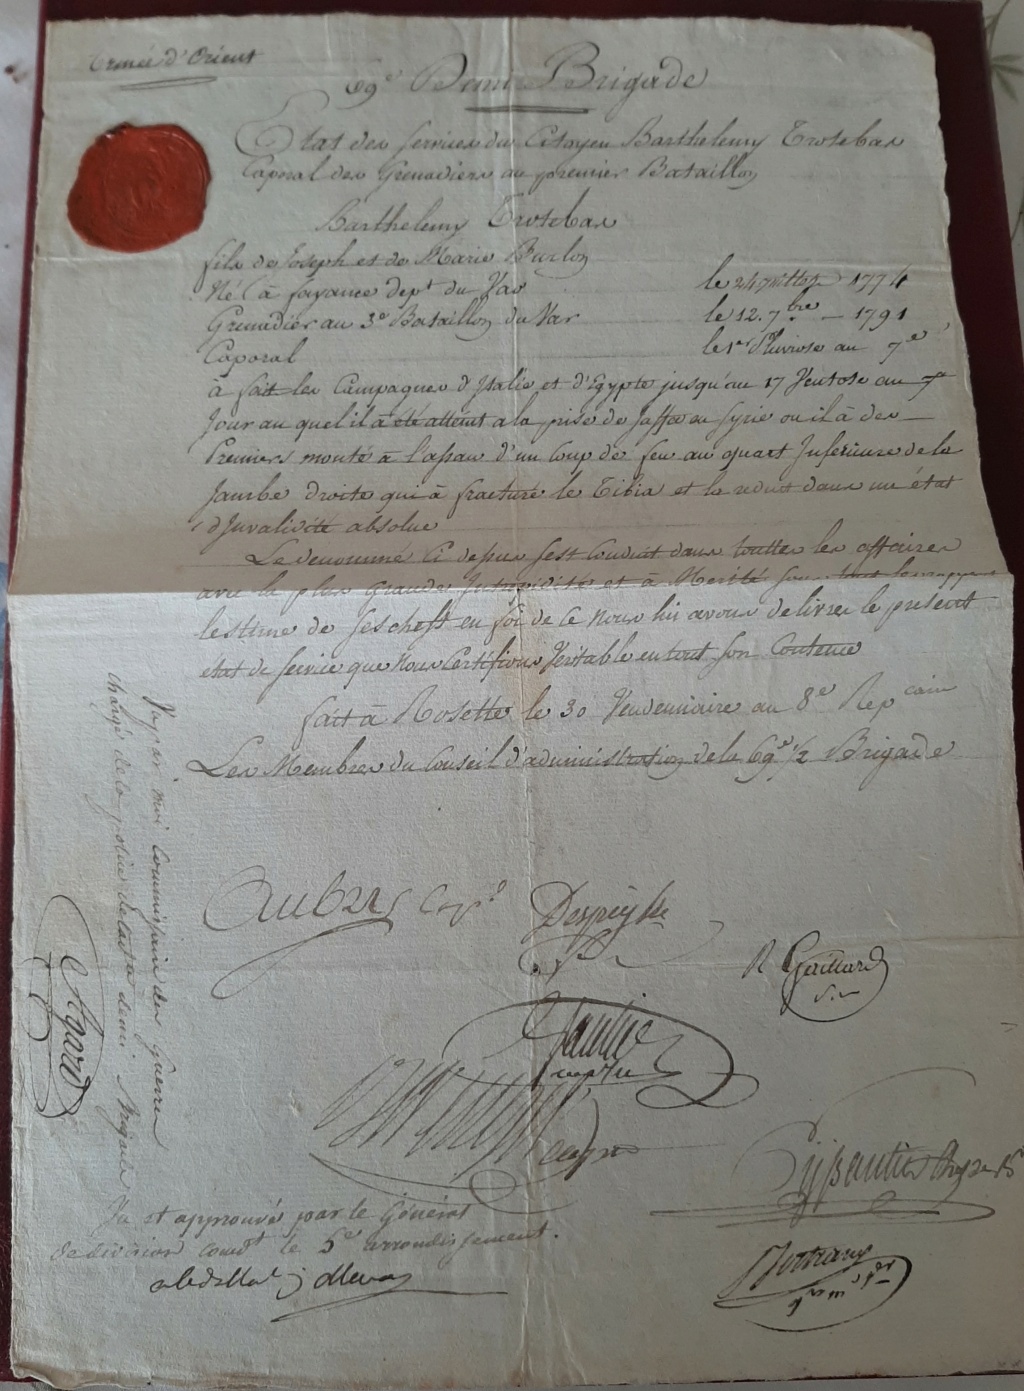 Armée d'Orient
69e Demi Brigade
Etat des services du Citoyen Barthelemy Trotebas
Caporal des Grenadiers au premier Bataillon
Barthelemy Trotebas
fils de Joseph et de Marie Burlon
Né à fayance dept du Var le 24 1774
Grenadier au 3e Bataillon du Var le 12. 7bre – 1791
Caporal le 1er Pluviose an 7e
à fait les Campagnes d'Italie et d'Egypte jusqu'au 17 Ventose an 7e
Jour au quel il à été attéint a la prise de Jaffa en Syrie ou il à des
Premiers monté à l'assau d'un Coup de feu au quart Inferieure de la
Jambe droite qui à fracturé le Tibia et le reduit dans un état
d'Invalidité absolue
Le denommé Ci dessus s'est Conduit dans touttes les affaires
avec la plus Grande Intrepidité et à Merité sous tout les rapports
lestime de ses cheffs en foi de Ce Nous lui avons delivré le présent
état de service que Nous Certifions Veritable en tout son Contenue
fait à Rosette le 30 Vendemiaire an 8e Repcain
Les Membres du Conseil d'administration de la 69e 1/2 Brigade
Aubry
R Gaillard
Vu par moi Commissaire des Guerres
chargé de la police de la 1/2 Brigade
Agard
Vu et approuvé par le Général
de division comdt le 5e arrondissement.
abdallah j Menou